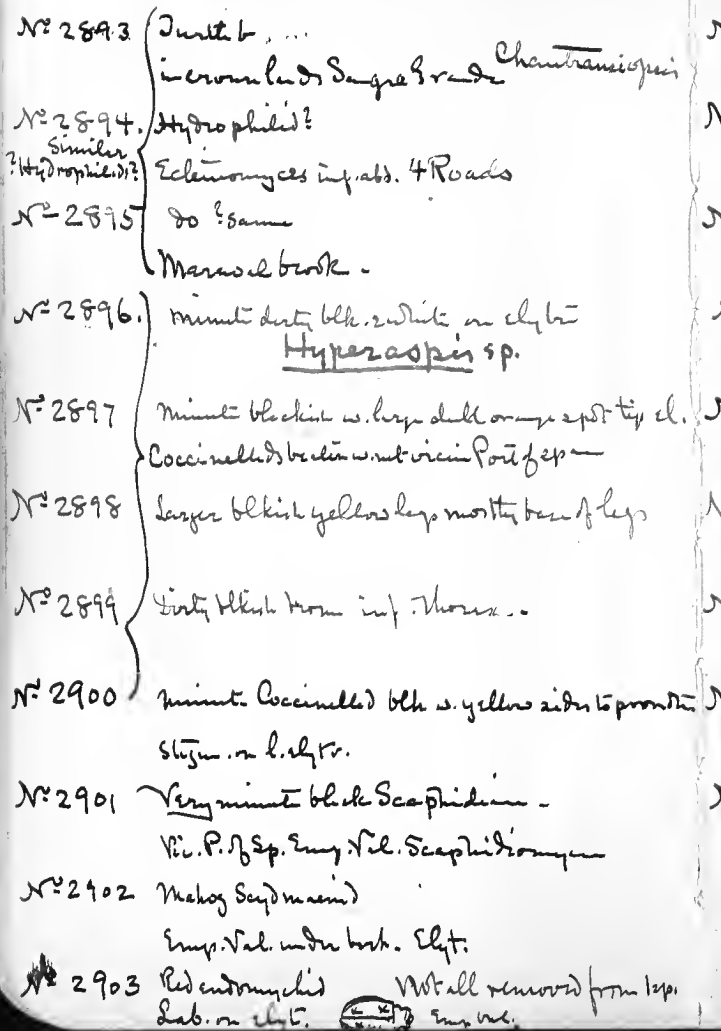 Nº 2893
in crown leads Sangre Grande Chantransiopsis
Nº 2894. Hydrophilid?
Similar
?Hydrophilids? Echinomyces inf. abd. 4 Roads
Nº 2895 do ?same
Maraval brook.
Nº 2896. Minute dirty blk. white on elytra
Hyperaspis sp.
Nº 2897 Minute blackish w. large dull orange spot tip el.
Coccinellids beaten w. net vicin Port of Sp
Nº 2898 Larger blkish yellow legs mostly base of legs
Nº 2899 Dirty blkish brown inf. Thorax..
Nº 2900 Minute Coccinellid blk w. yellow sides to
Stigm. on l. elytr.
Nº 2901 Very minute black Scaphidium
Vic. P. of Sp. Emp. Val. Scaphidiomyces
Nº 2902 Mahog Scydmaenid
Emp. Val. under bark. Elyt.
Nº 2903 Red endomychid Not all removed from 1 sp.
Lab. on elyt. Emp. Val.